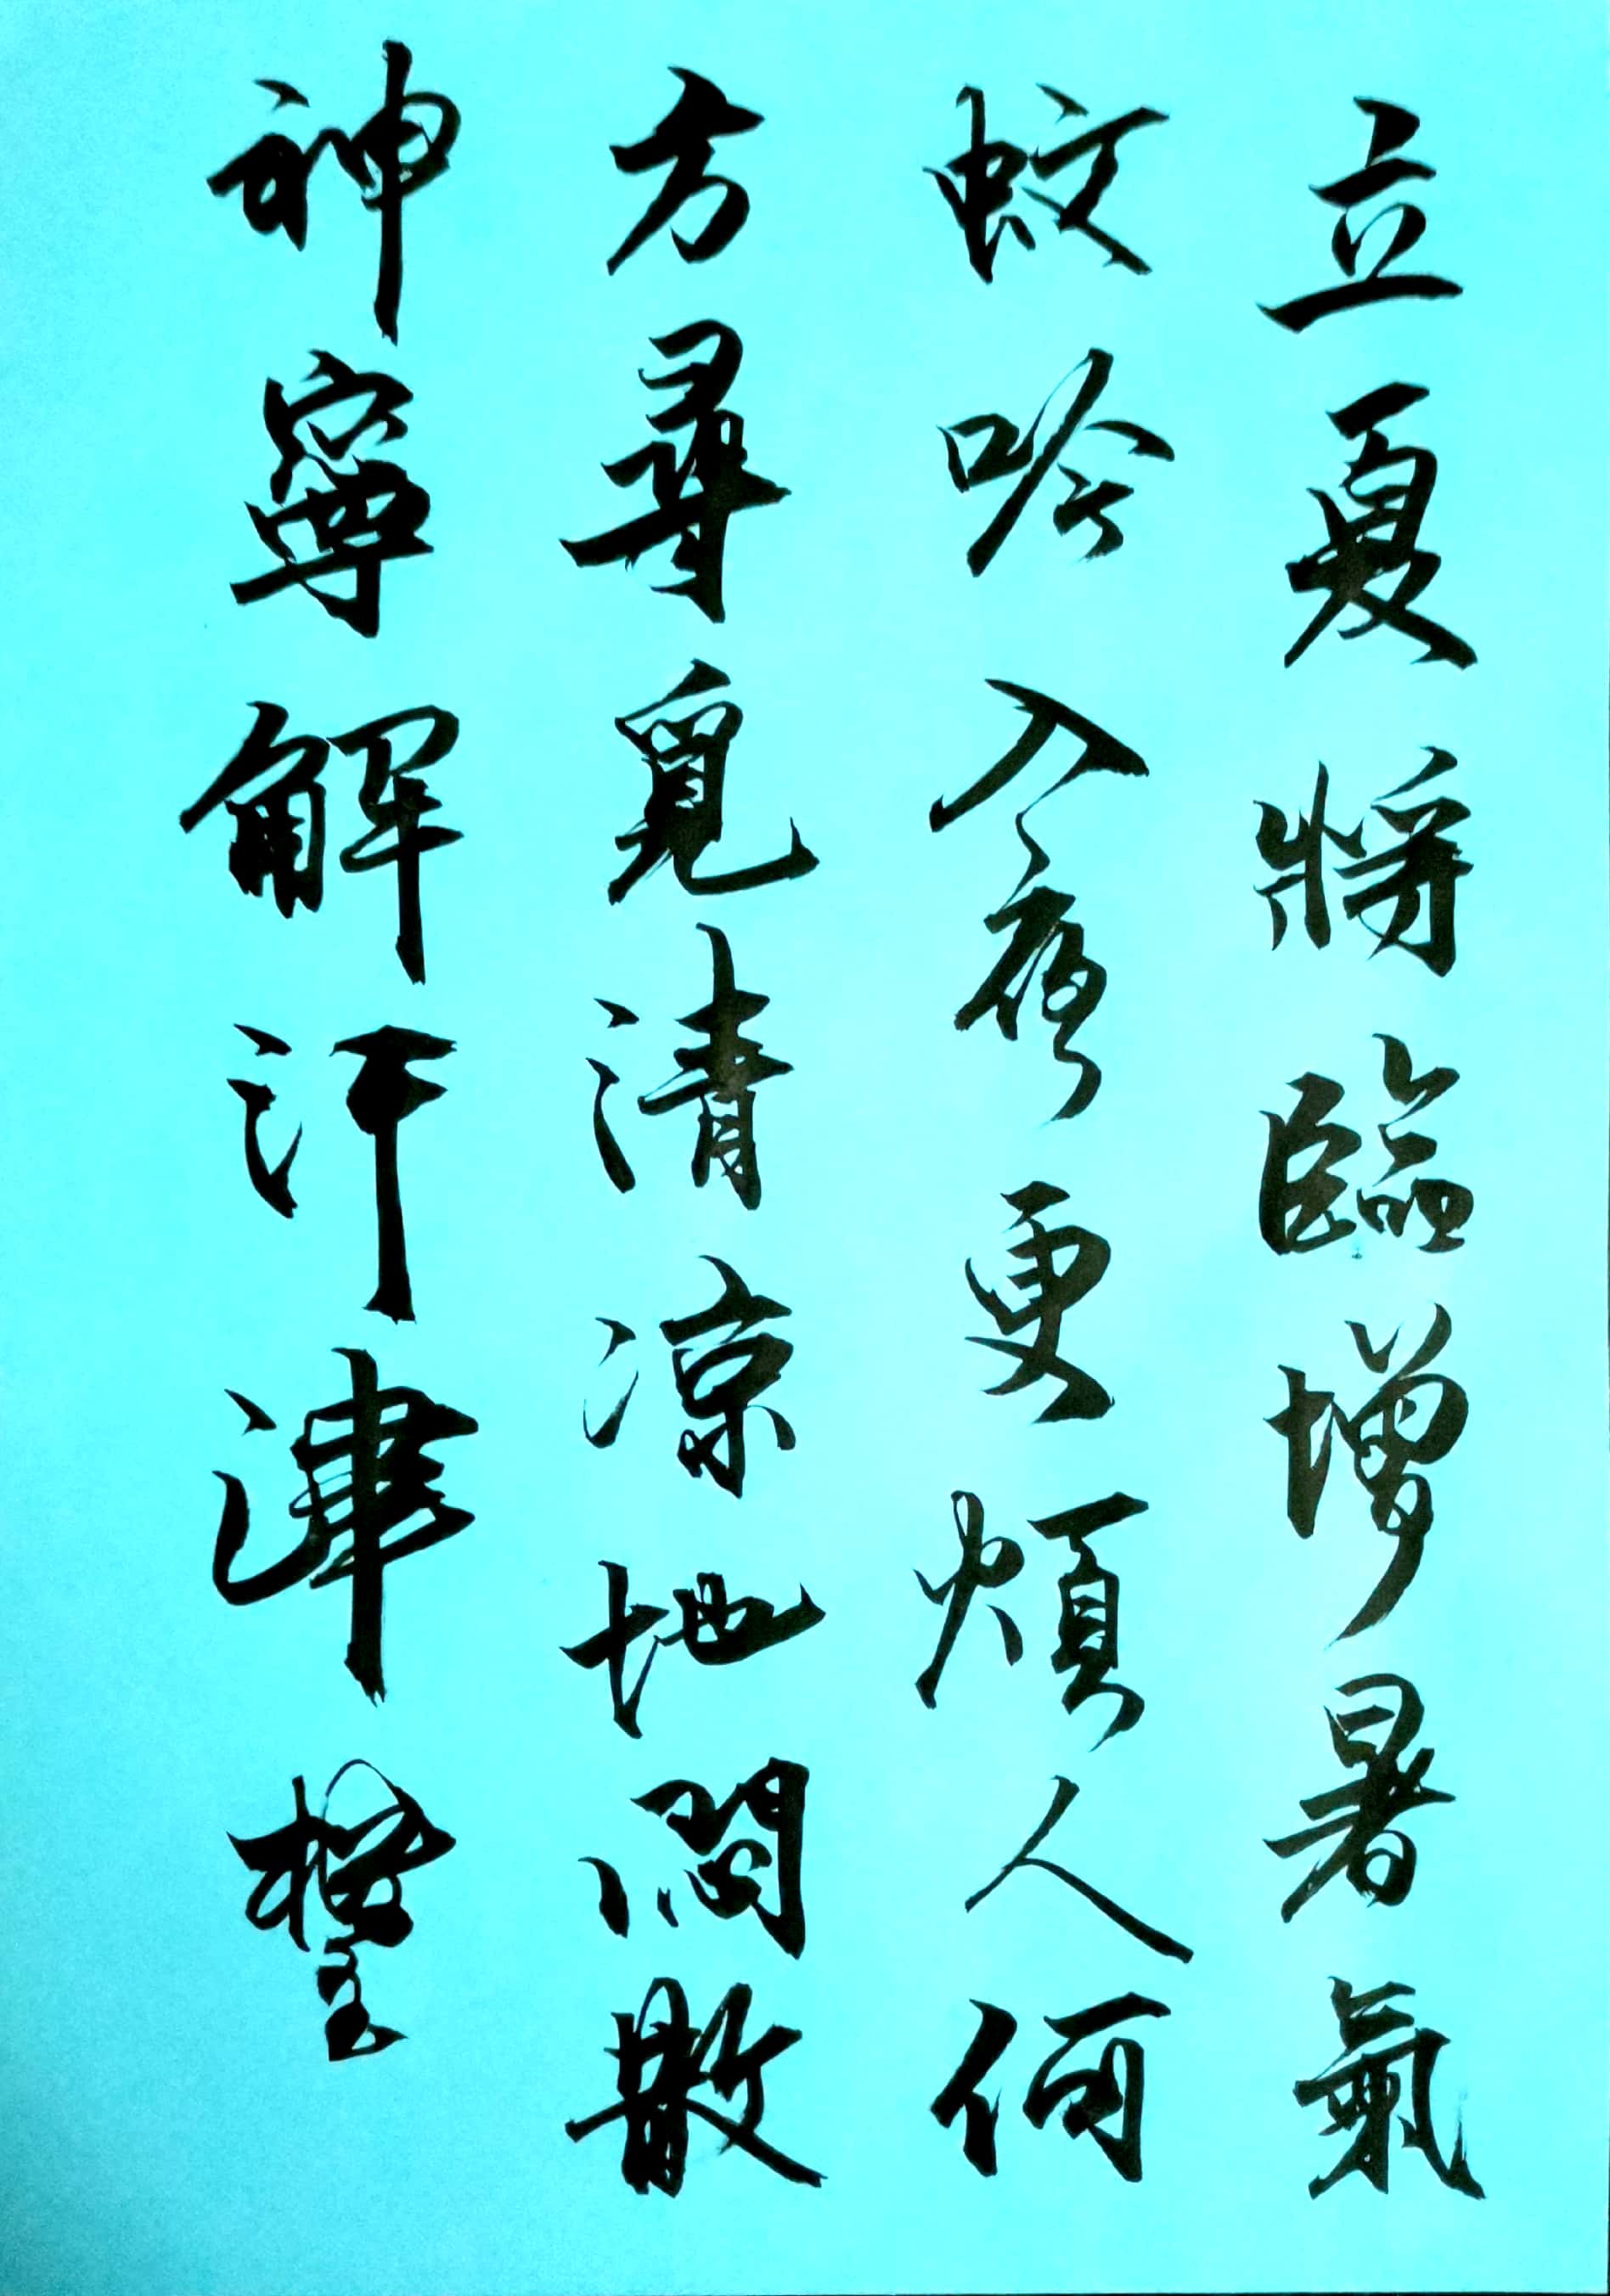 立夏將臨增暑氣
蚊吟入夜更煩人何
方尋覓清涼地悶散
神寧解汗津